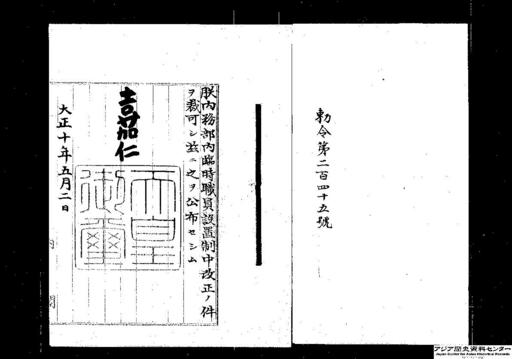 勅令第二百四十五號
朕内務部内臨時職員設置制中改正ノ件
ヲ裁可シ茲ニ之ヲ公布セシム
嘉仁
天皇
御璽
大正十年五月二日
内閣
アジア歴史資料センター
Japan Center for Asian Historical Records